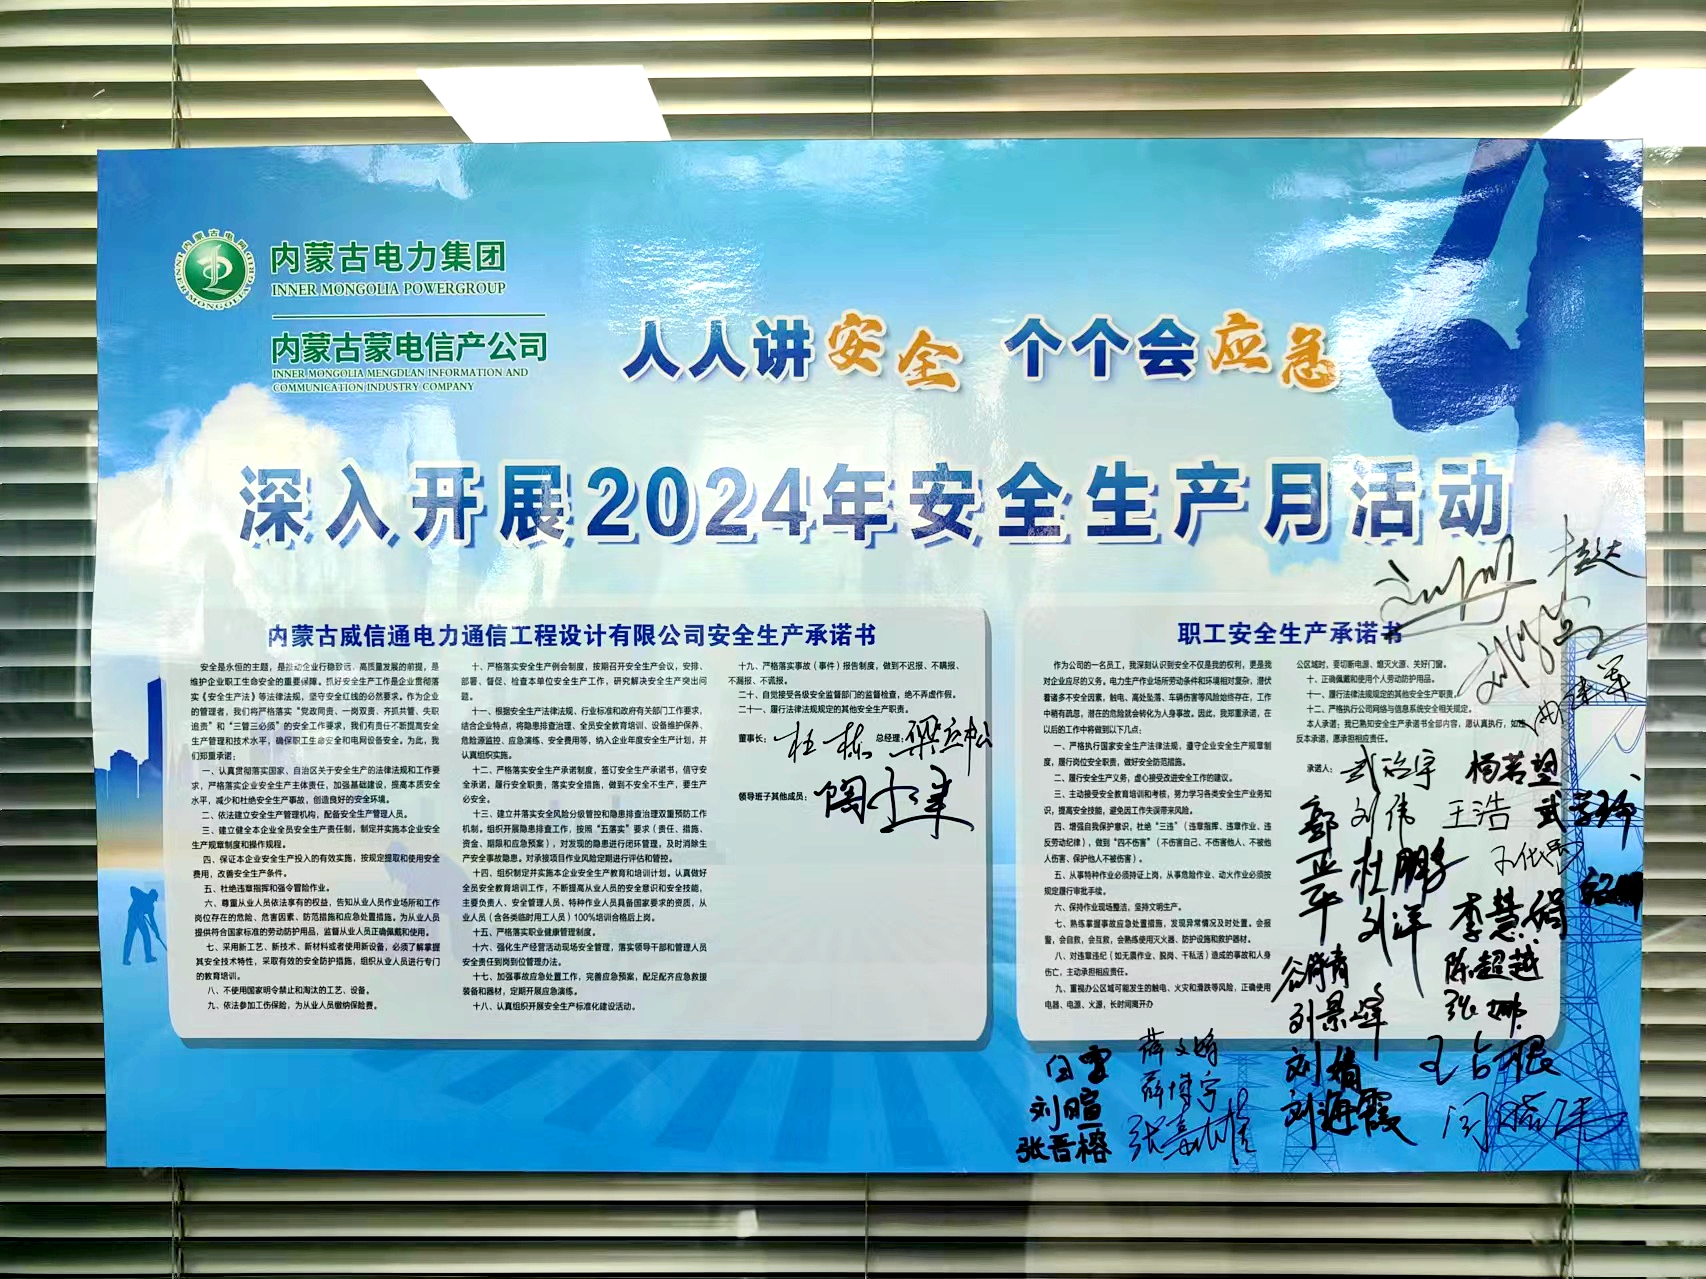 内蒙古电力集团
INNER MONGOLIA POWERGROUP
内蒙古蒙电信产公司
INNER MONGOLIA MENGDLAN INFORMATION AND
COMMUNICATION INDUSTRY COMPANY
人人讲安全 个个会应急
深入开展2024年安全生产月活动
内蒙古威信通电力通信工程设计有限公司安全生产承诺书
安全是永恒的主题，是推动企业行稳致远、高质量发展的前提，是
维护企业职工生命安全的重要保障。抓好安全生产工作是企业贯彻落
实《安全生产法》等法律法规，坚守安全红线的必然要求。作为企业
的管理者，我们将严格落实“党政同责、一岗双责、齐抓共管、失职
追责”和“三管三必须”的安全工作要求，我们有责任不断提高安全
生产管理和技术水平，确保职工生命安全和电网设备安全。为此，我
们郑重承诺：
一、认真贯彻落实国家、自治区关于安全生产的法律法规和工作要
求，严格落实企业安全生产主体责任，加强基础建设，提高本质安全
水平，减少和杜绝安全生产事故，创造良好的安全环境。
二、依法建立安全生产管理机构，配备安全生产管理人员。
三、建立健全本企业全员安全生产责任制，制定并实施本企业安全
生产规章制度和操作规程。
四、保证本企业安全生产投入的有效实施，按规定提取和使用安全
费用，改善安全生产条件。
五、杜绝违章指挥和强令冒险作业。
六、尊重从业人员依法享有的权益，告知从业人员作业场所和工作
岗位存在的危险、危害因素、防范措施和应急处置措施。为从业人员
提供符合国家标准的劳动防护用品，监督从业人员正确佩戴和使用。
七、采用新工艺、新技术、新材料或者使用新设备，必须了解掌握
其安全技术特性，采取有效的安全防护措施，组织从业人员进行专门
的教育培训。
八、不使用国家明令禁止和淘汰的工艺、设备。
九、依法参加工伤保险，为从业人员缴纳保险费。
十、严格落实安全生产例会制度，按期召开安全生产会议，安排、
部署、督促、检查本单位安全生产工作，研究解决安全生产突出问
题。
十一、根据安全生产法律法规、行业标准和政府有关部门工作要求，
结合企业特点，将隐患排查治理、全员安全教育培训、设备维护保养、
危险源监控、应急演练、安全费用等，纳入企业年度安全生产计划，并
认真组织实施。
十二、严格落实安全生产承诺制度，签订安全生产承诺书，信守安
全承诺，履行安全职责，落实安全措施，做到不安全不生产，要生产
必安全。
十三、建立并落实安全风险分级管控和隐患排查治理双重预防工作
机制。组织开展隐患排查工作，按照“五落实”要求（责任、措施、
资金、期限和应急预案），对发现的隐患进行闭环管理，及时消除生
产安全事故隐患。对承接项目作业风险定期进行评估和管控。
十四、组织制定并实施本企业安全生产教育和培训计划。认真做好
全员安全教育培训工作，不断提高从业人员的安全意识和安全技能，
主要负责人、安全管理人员、特种作业人员具备国家要求的资质，从
业人员（含各类临时用工人员）100%培训合格后上岗。
十五、严格落实职业健康管理制度。
十六、强化生产经营活动现场安全管理，落实领导干部和管理人员
安全责任到岗到位管理办法。
十七、加强事故应急处置工作，完善应急预案，配足配齐应急救援
装备和器材，定期开展应急演练。
十八、认真组织开展安全生产标准化建设活动。
十九、严格落实事故（事件）报告制度，做到不迟报、不瞒报、
不漏报、不谎报。
二十、自觉接受各级安全监督部门的监督检查，绝不弄虚作假。
二十一、履行法律法规规定的其他安全生产职责。
董事长：杜一栋 总经理：梁立松
领导班子其他成员：
职工安全生产承诺书
作为公司的一名员工，我深刻认识到安全不仅是我的权利，更是我
对企业应尽的义务。电力生产作业场所劳动条件和环境相对复杂，潜伏
着诸多不安全因素，触电、高处坠落、车辆伤害等风险始终存在，工作
中稍有疏忽，潜在的危险就会转化为人身事故。因此，我郑重承诺，在
以后的工作中将做到以下几点：
一、严格执行国家安全生产法律法规，遵守企业安全生产规章制
度，履行岗位安全职责，做好安全防范措施。
二、履行安全生产义务，虚心接受改进安全工作的建议。
三、主动接受安全教育培训和考核，努力学习各类安全生产业务知
识，提高安全技能，避免因工作失误带来风险。
四、增强自我保护意识，杜绝“三违”（违章指挥、违章作业、违
反劳动纪律），做到“四不伤害”（不伤害自己、不伤害他人、不被他
人伤害、保护他人不被伤害）。
五、从事特种作业必须持证上岗，从事危险作业、动火作业必须按
规定履行审批手续。
六、保持作业现场整洁，坚持文明生产。
七、熟练掌握事故应急处置措施，发现异常情况及时处置。会报
警，会自救，会互救，会熟练使用灭火器、防护设施和救护器材。
八、对违章违纪（如无票作业、脱岗、干私活）造成的事故和人身
伤亡，主动承担相应责任。
九、重视办公区域可能发生的触电、火灾和滑跌等风险，正确使用
电器、电源、火源，长时间离开办
公区域时，要切断电源、熄灭火源、关好门窗。
十、正确佩戴和使用个人劳动防护用品。
十一、履行法律法规规定的其他安全生产职责。
十二、严格执行公司网络与信息系统安全相关规定。
本人承诺：我已熟知安全生产承诺书全部内容，愿认真执行，如违
反本承诺，愿承担相应责任。
承诺人：武治宇 杨若望
刘伟 王浩
郭亚平 杜鹏
刘洋 李慧娟
谷晓青 陈超越
刘景峰 张娜
刘倩 王占根
刘海霞
白雪 薛文婷
刘暄 薛博宇
张晋榕